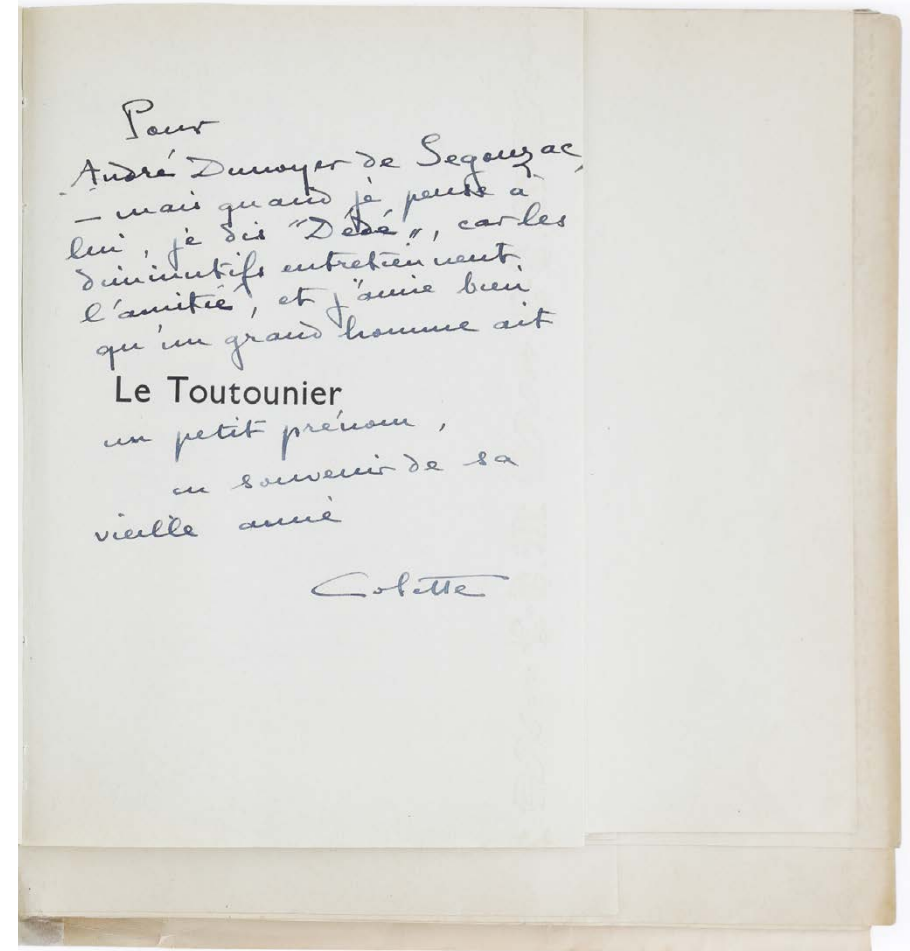 Pour
André Dunoyer de Segonzac,
– mais quand je pense à
lui, je dis "Dédé", car les
diminutifs entretiennent
l'amitié, et j'aime bien
qu'un grand homme ait
Le Toutounier
un petit prénom,
en souvenir de sa
vieille amie
Colette